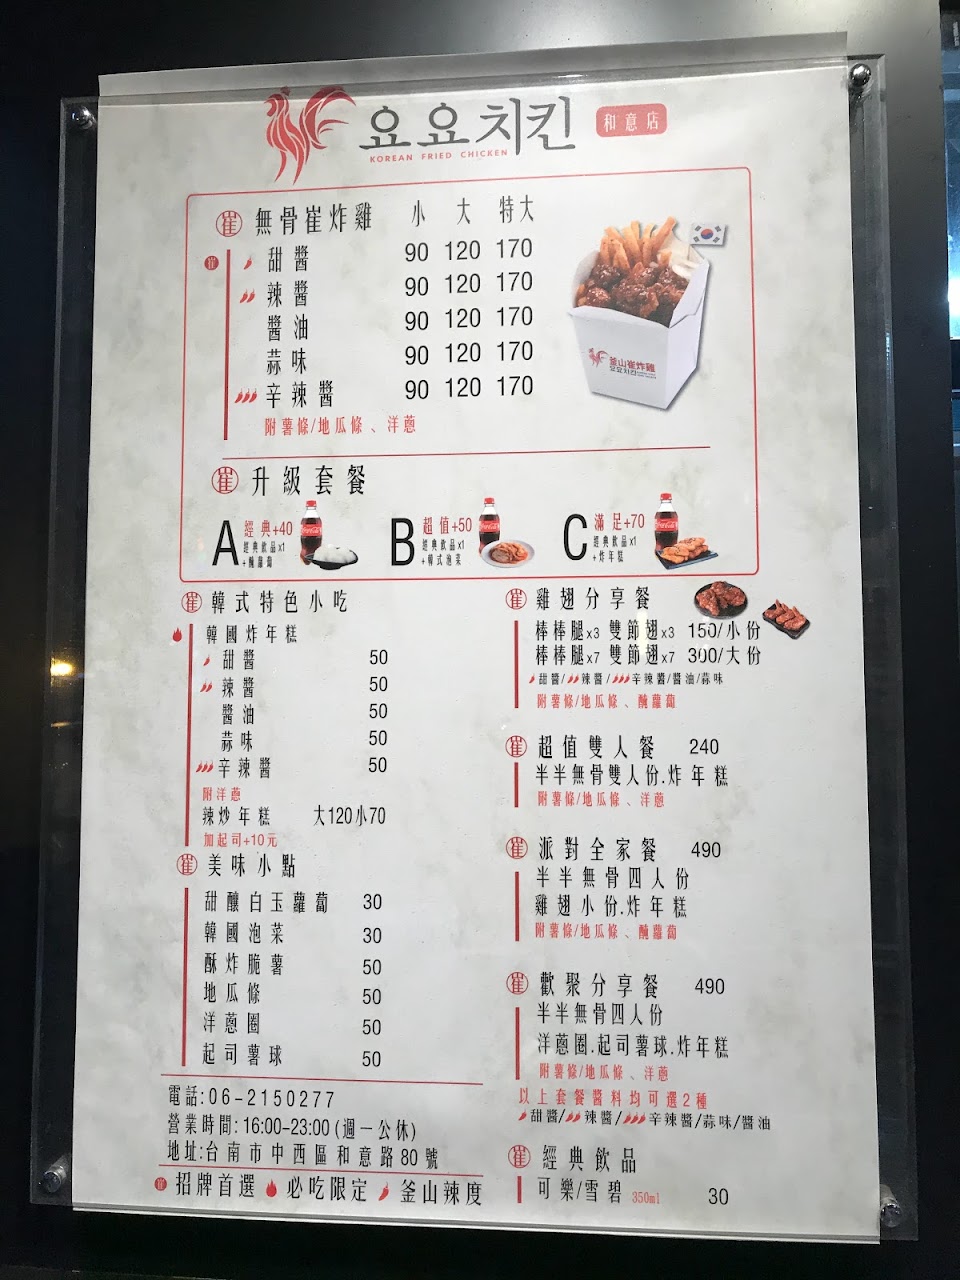 요요치킨 和意店
KOREAN FRIED CHICKEN
崔 無骨崔炸雞 小 大 特大
崔 甜醬 90 120 170
辣醬 90 120 170
醬油 90 120 170
蒜味 90 120 170
辛辣醬 90 120 170
附薯條/地瓜條、洋蔥
釜山崔炸雞
요요치킨
崔 升級套餐
A 經典+40
經典飲品x1
+醃蘿蔔
B 超值+50
經典飲品x1
+韓式泡菜
C 滿足+70
經典飲品x1
+炸年糕
Coca-Cola
崔 韓式特色小吃
韓國炸年糕
甜醬 50
辣醬 50
醬油 50
蒜味 50
辛辣醬 50
附洋蔥
辣炒年糕 大120小70
加起司+10元
崔 美味小點
甜釀白玉蘿蔔 30
韓國泡菜 30
酥炸脆薯 50
地瓜條 50
洋蔥圈 50
起司薯球 50
電話:06-2150277
營業時間:16:00-23:00(週一公休)
地址:台南市中西區和意路80號
崔 招牌首選 必吃限定 釜山辣度
崔 雞翅分享餐
棒棒腿x3 雙節翅x3 150/小份
棒棒腿x7 雙節翅x7 300/大份
甜醬/辣醬/辛辣醬/醬油/蒜味
附薯條/地瓜條、醃蘿蔔
崔 超值雙人餐 240
半半無骨雙人份.炸年糕
附薯條/地瓜條、洋蔥
崔 派對全家餐 490
半半無骨四人份
雞翅小份.炸年糕
附薯條/地瓜條、醃蘿蔔
崔 歡聚分享餐 490
半半無骨四人份
洋蔥圈.起司薯球.炸年糕
附薯條/地瓜條、洋蔥
以上套餐醬料均可選2種
甜醬/辣醬/辛辣醬/蒜味/醬油
崔 經典飲品
可樂/雪碧 350ml 30